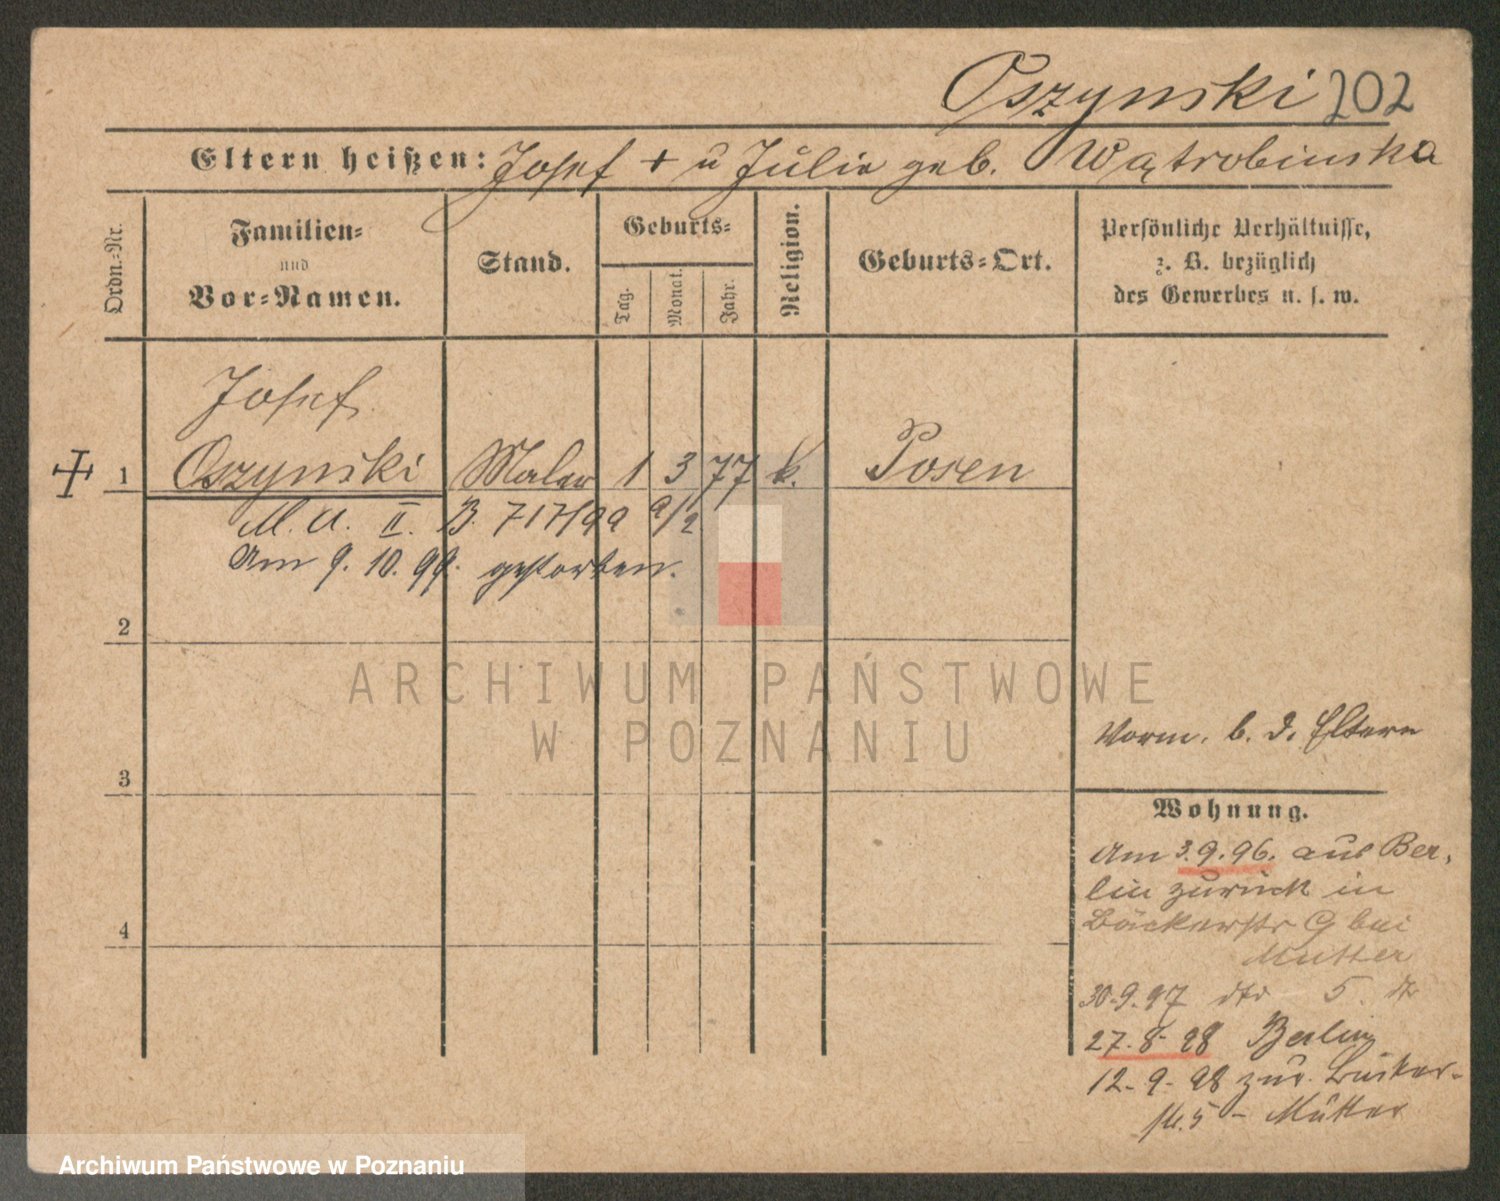 Oszynski 202
Eltern heißen: Josef + u Julie geb. Wątrobinska
Ordn.-Nr.
Familien-
und
Vor-Namen.
Stand.
Geburts-
Tag.
Monat.
Jahr.
Religion.
Geburts-Ort.
Persönliche Verhältnisse,
z. B. bezüglich
des Gewerbes u. s. w.
Josef
1 Oszynski Maler 1 3 77 k. Posen
M. A. II. B. 717/99 9/2
Am 9. 10. 99. gestorben.
2
3
4
Vorm. b. d. Eltern
Wohnung.
Am 3.9.96. aus Ber-
lin zurück in
Bäckerstr 9 bei
Mutter
30.9.97 dto 5. dto
27.8.98 Berlin
12.9.98 zur. Bäcker-
str. 5 - Mutter
ARCHIWUM PAŃSTWOWE
W POZNANIU
Archiwum Państwowe w Poznaniu